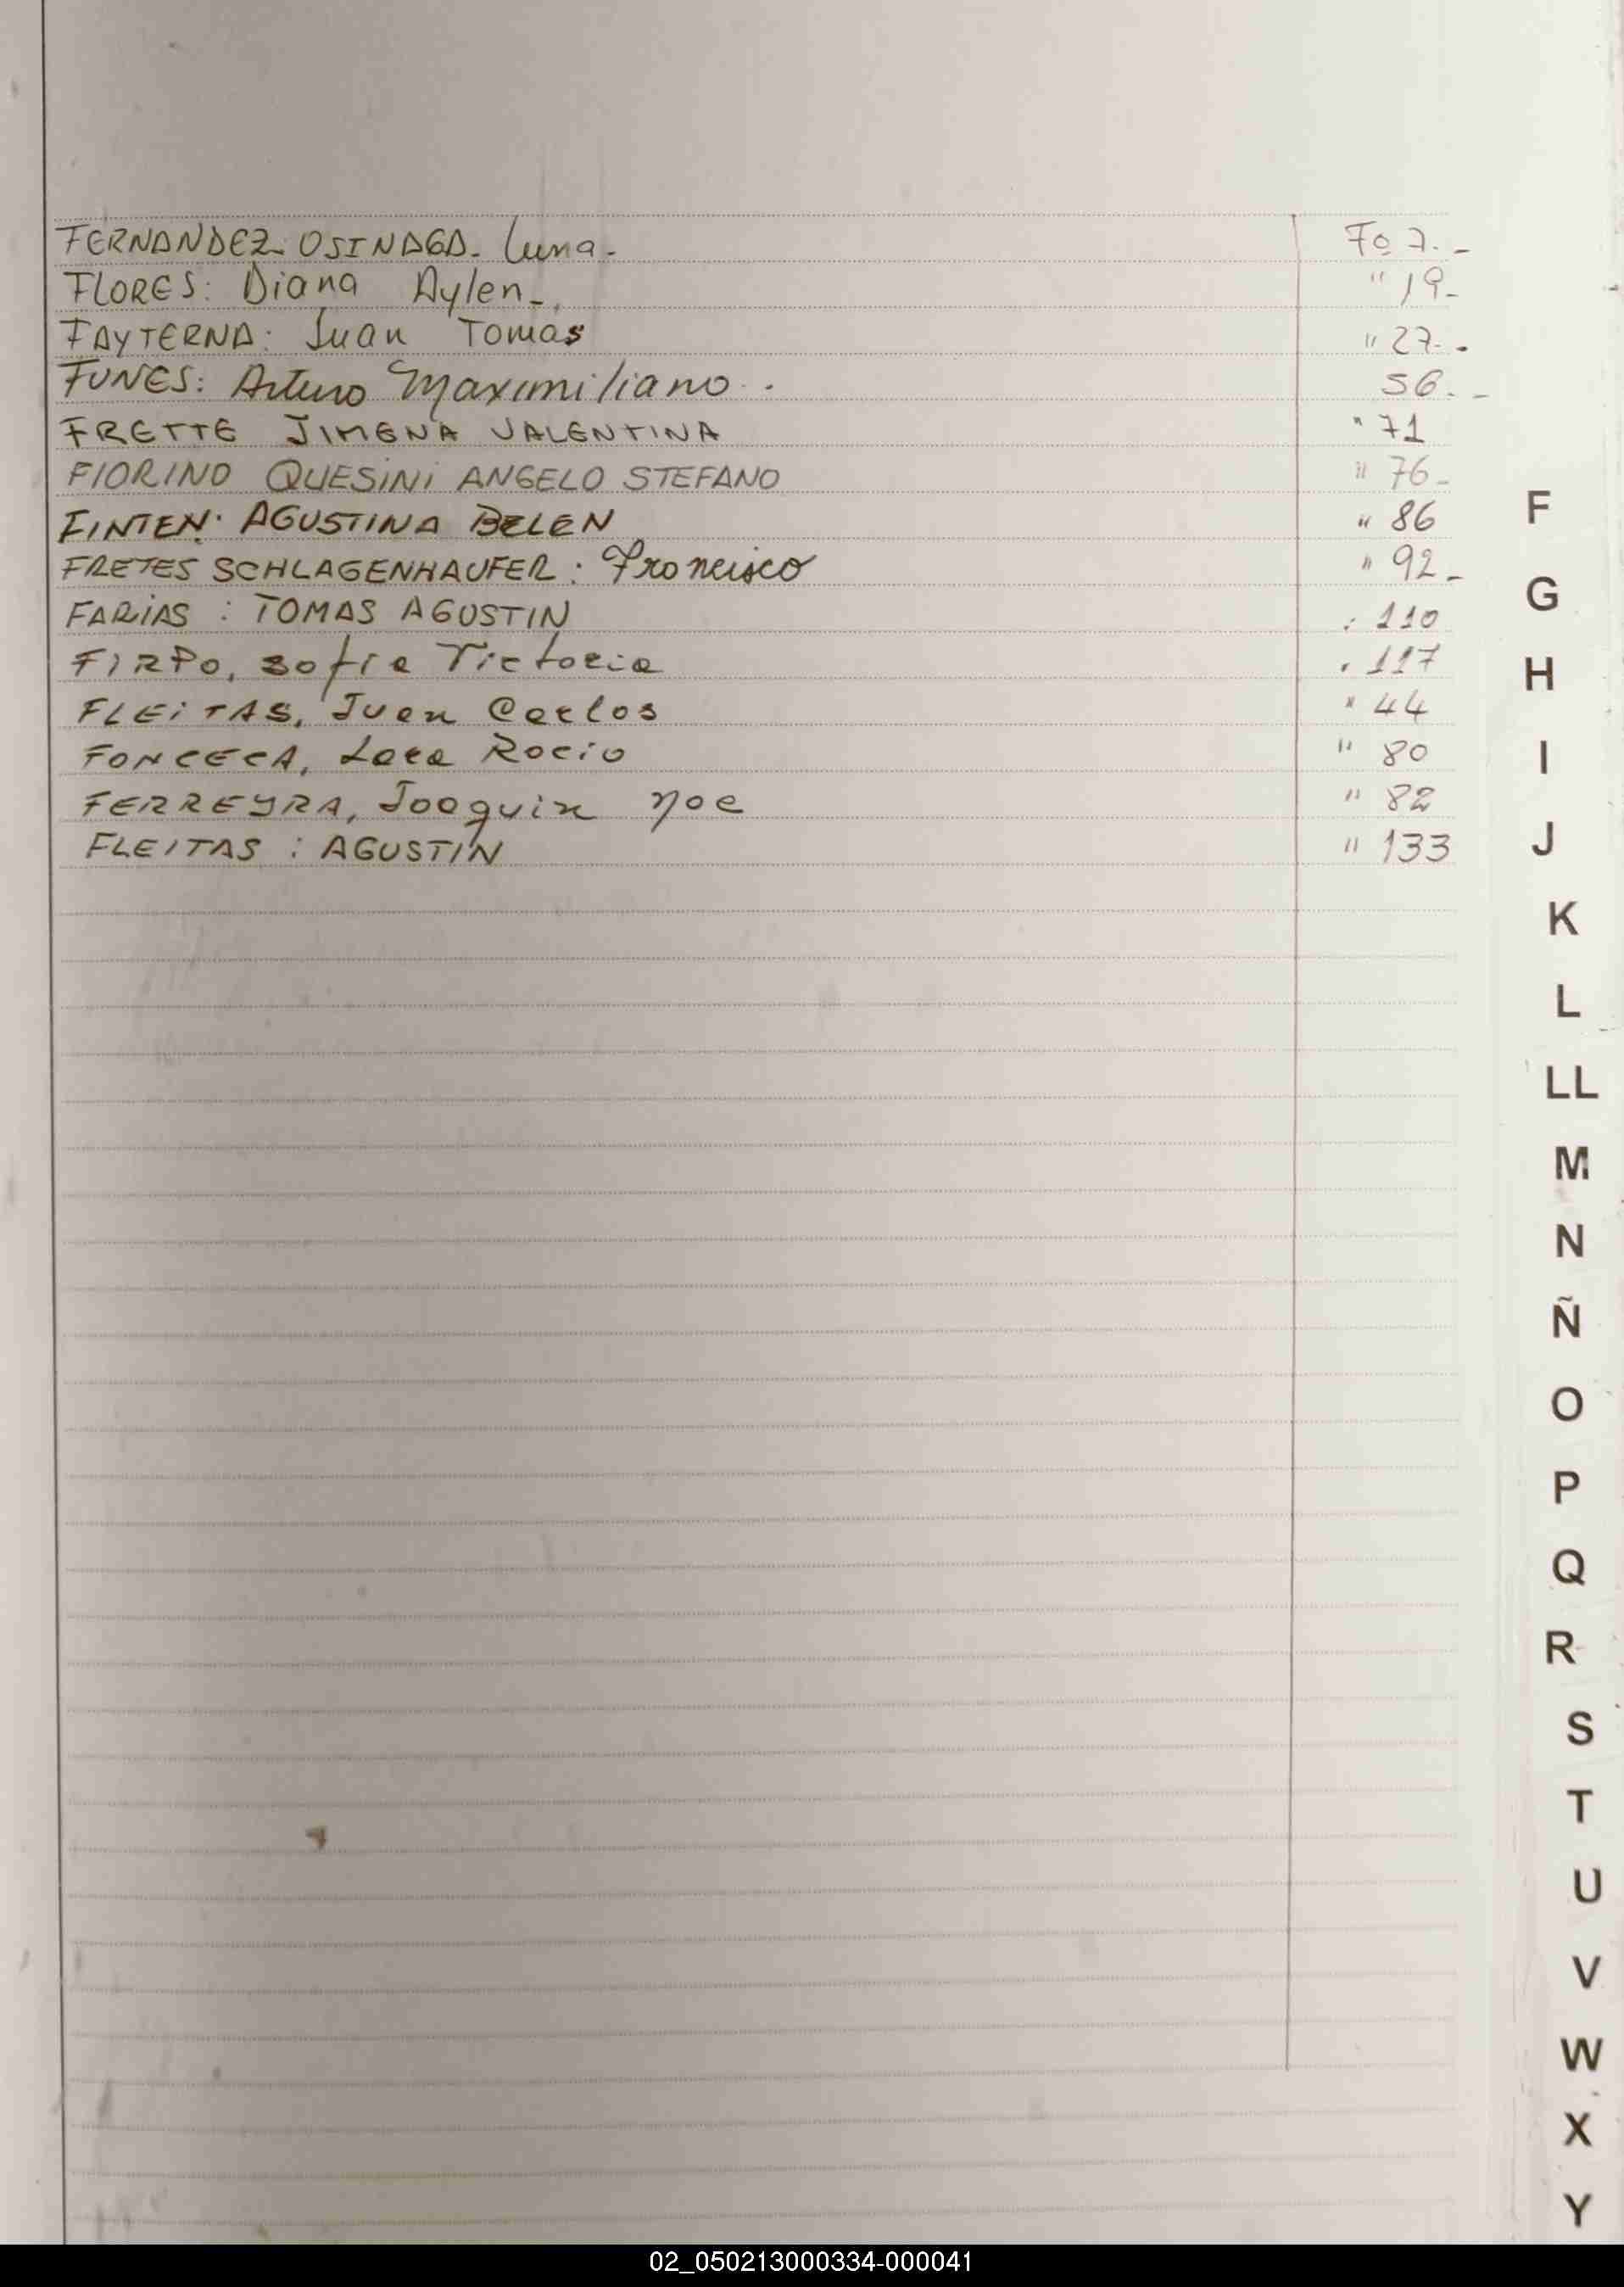 FERNANDEZ OSINAGA. Luna. Fo 7. -
FLORES: Diana Aylen - " 19 -
FAYTERNA: Juan Tomás " 27 -
FUNES: Arturo Maximiliano . 56 . -
FRETTE JIMENA VALENTINA " 71
FIORINO QUESINI ANGELO STEFANO " 76 -
FINTEN. AGUSTINA BELEN " 86
FRETES SCHLAGENHAUFER: Francisco " 92 -
FARIAS : TOMAS AGUSTIN . 110
FIRPO, Sofia Victoria . 117
FLEITAS, Juan Carlos " 44
FONCECA, Lara Rocio " 80
FERREYRA, Joaquin Noe " 82
FLEITAS : AGUSTIN " 133
F
G
H
I
J
K
L
LL
M
N
Ñ
O
P
Q
R
S
T
U
V
W
X
Y
02_050213000334-000041